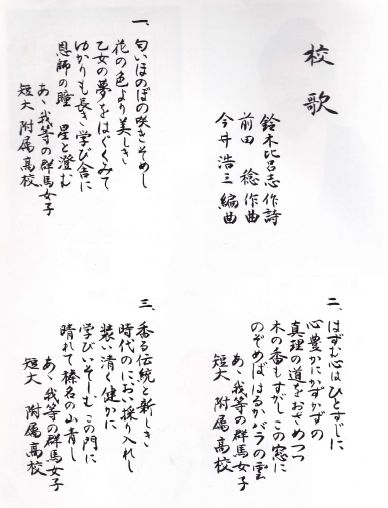 校歌
鈴木比呂志 作詩
前田 稔 作曲
今井浩三 編曲
一、
匂いほのぼの咲きそめし
花の色より美しき
乙女の夢をはぐくみて
ゆかりも長き学び舎に
恩師の瞳 星と澄む
あゝ我等の群馬女子
短大 附属高校
二、
はずむ心はひとすじに
心豊かにかずかずの
真理の道をおさめつつ
木の香もすがしこの窓に
のぞめばはるかバラの雲
あゝ我等の群馬女子
短大 附属高校
三、
香る伝統と新しき
時代のにおい採り入れし
装い清く健かに
学びいそしむこの門に
晴れて榛名の山青し
あゝ我等の群馬女子
短大 附属高校